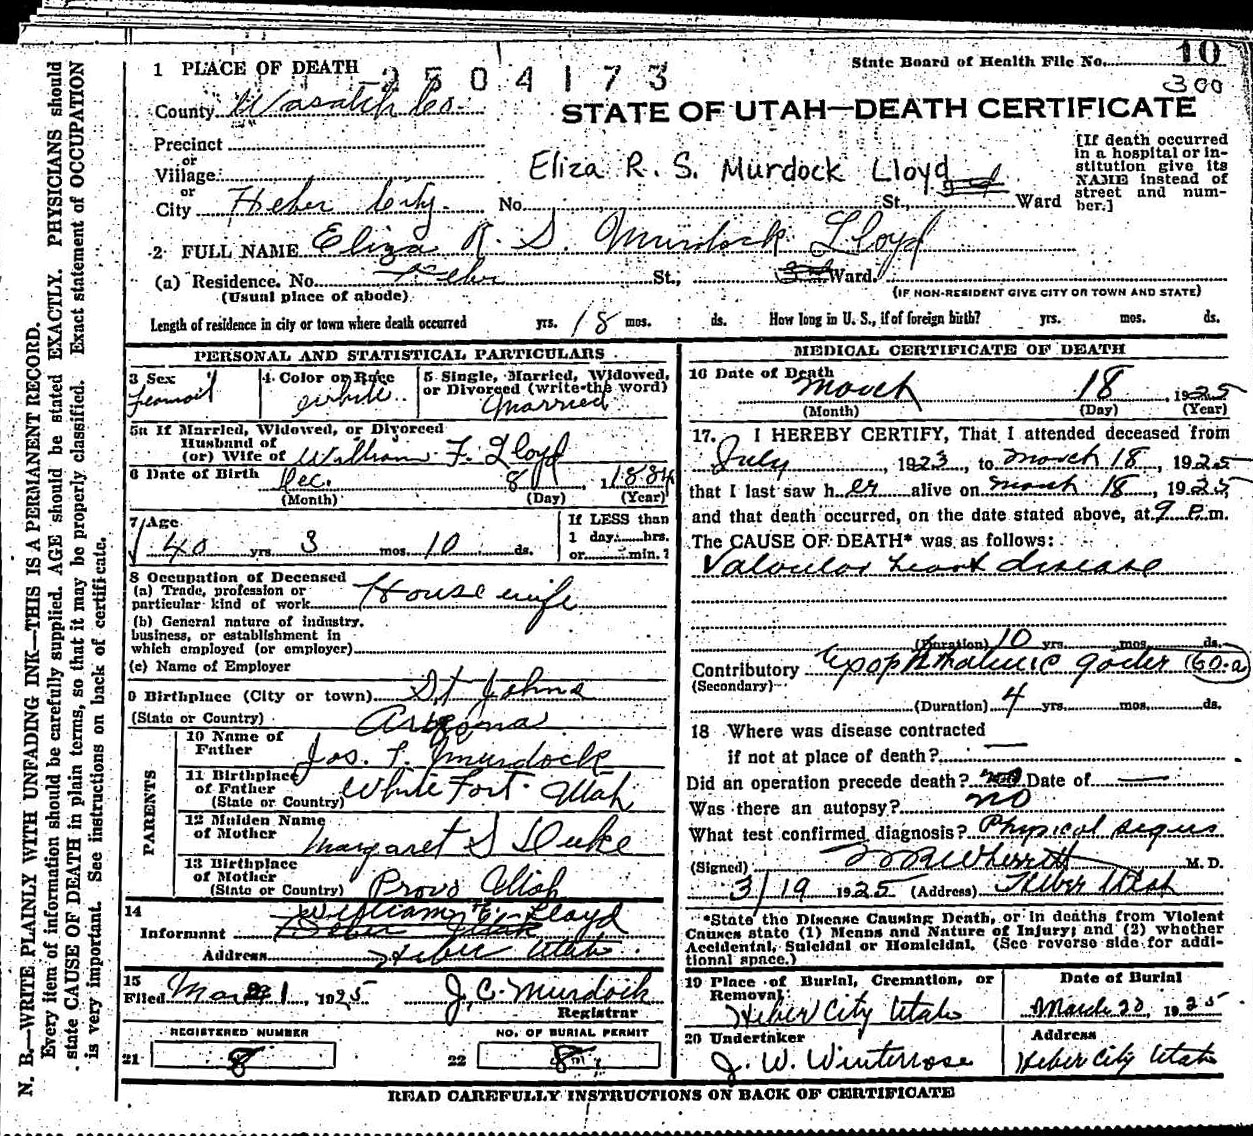 10
State Board of Health File No.
300
1 PLACE OF DEATH 2504173
County Wasatch Co.
STATE OF UTAH—DEATH CERTIFICATE
Precinct
or
Village
or
City Heber City. No. St., Ward
Eliza R. S. Murdock Lloyd
[If death occurred
in a hospital or in-
stitution give its
NAME instead of
street and num-
ber.]
2 FULL NAME Eliza R. S. Murdock Lloyd
(a) Residence. No. Heber St., Ward.
(Usual place of abode)
(IF NON-RESIDENT GIVE CITY OR TOWN AND STATE)
Length of residence in city or town where death occurred yrs. 18 mos. ds. How long in U. S., if of foreign birth? yrs. mos. ds.
PERSONAL AND STATISTICAL PARTICULARS
3 Sex
4 Color or Race
White
5 Single, Married, Widowed,
or Divorced (write the word)
Married
5a If Married, Widowed, or Divorced
Husband of
(or) Wife of William F. Lloyd
6 Date of Birth Dec. 8 1884
(Month) (Day) (Year)
7 Age
40 yrs 3 mos. 10 ds.
If LESS than
1 day hrs.
or min.?
8 Occupation of Deceased
(a) Trade, profession or
particular kind of work House wife
(b) General nature of industry.
business, or establishment in
which employed (or employer)
(c) Name of Employer
9 Birthplace (City or town) St Johns
(State or Country) Arizona
PARENTS
10 Name of
Father Jos. T. Murdock
11 Birthplace
of Father
(State or Country) White Fort. Utah
12 Maiden Name
of Mother Margaret S Duke
13 Birthplace
of Mother
(State or Country) Provo Utah
14
Informant William F. Lloyd
Heber Utah
Address Heber Utah
15
Filed Mar 21, 1925 J. C. Murdock
Registrar
REGISTERED NUMBER NO. OF BURIAL PERMIT
21 8 22 8
MEDICAL CERTIFICATE OF DEATH
16 Date of Death
March 18, 1925
(Month) (Day) (Year)
17. I HEREBY CERTIFY, That I attended deceased from
July, 1923, to March 18, 1925
that I last saw her alive on March 18, 1925,
and that death occurred, on the date stated above, at 9 P.m.
The CAUSE OF DEATH* was as follows:
Valvular heart disease
(Duration) 10 yrs. mos. ds.
Contributory Exophthalmic goiter (60.a)
(Secondary)
(Duration) 4 yrs. mos. ds.
18 Where was disease contracted
if not at place of death? —
Did an operation precede death? no Date of —
Was there an autopsy? no
What test confirmed diagnosis? Physical signs
(Signed) W R Wherritt M. D.
3/19 1925 (Address) Heber Utah
*State the Disease Causing Death, or in deaths from Violent
Causes state (1) Means and Nature of Injury; and (2) whether
Accidental, Suicidal or Homicidal. (See reverse side for addi-
tional space.)
19 Place of Burial, Cremation, or
Removal
Heber City Utah
Date of Burial
March 20, 1925
20 Undertaker
J. W. Winterrose
Address
Heber City Utah
READ CAREFULLY INSTRUCTIONS ON BACK OF CERTIFICATE
N. B.—WRITE PLAINLY WITH UNFADING INK—THIS IS A PERMANENT RECORD.
Every item of information should be carefully supplied. AGE should be stated EXACTLY. PHYSICIANS should
state CAUSE OF DEATH in plain terms, so that it may be properly classified. Exact statement of OCCUPATION
is very important. See instructions on back of certificate.